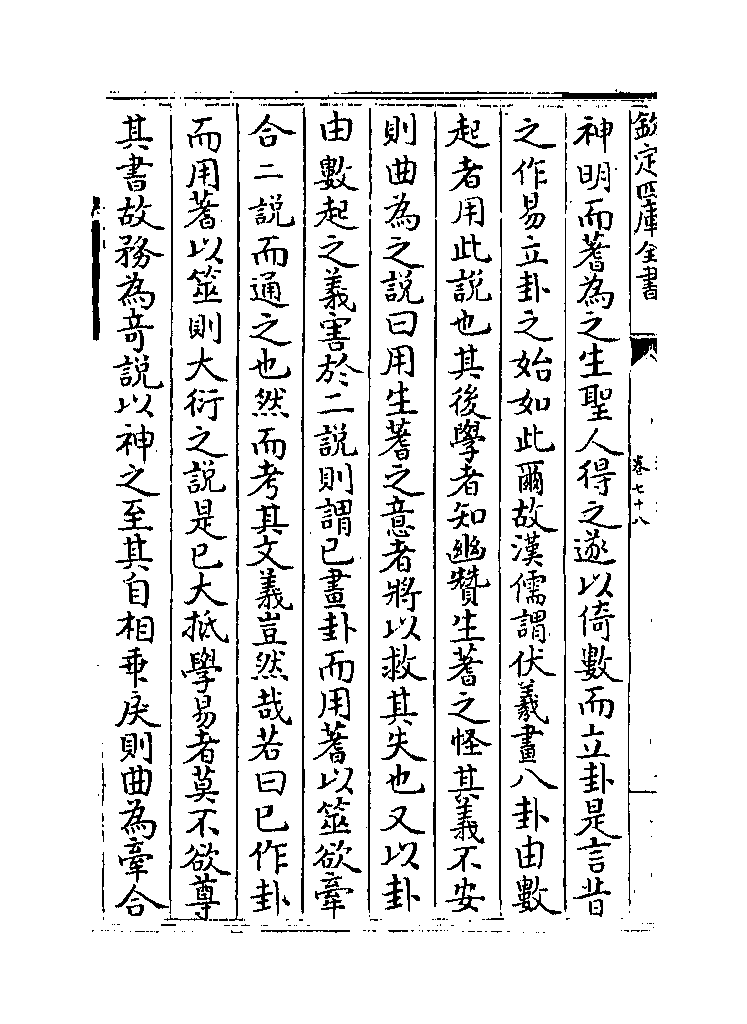 欽定四庫全書
卷七十八
神明而蓍為之生聖人得之遂以倚數而立卦是言昔
之作易立卦之始如此爾故漢儒謂伏羲畫八卦由數
起者用此說也其後學者知幽贊生蓍之怪其義不安
則曲為之說曰用生蓍之意者將以救其失也又以卦
由數起之義害於二說則謂已畫卦而用蓍以筮欲牽
合二說而通之也然而考其文義豈然哉若曰已作卦
而用蓍以筮則大衍之說是已大抵學易者莫不欲尊
其書故務為奇說以神之至其自相乖戾則曲為牽合